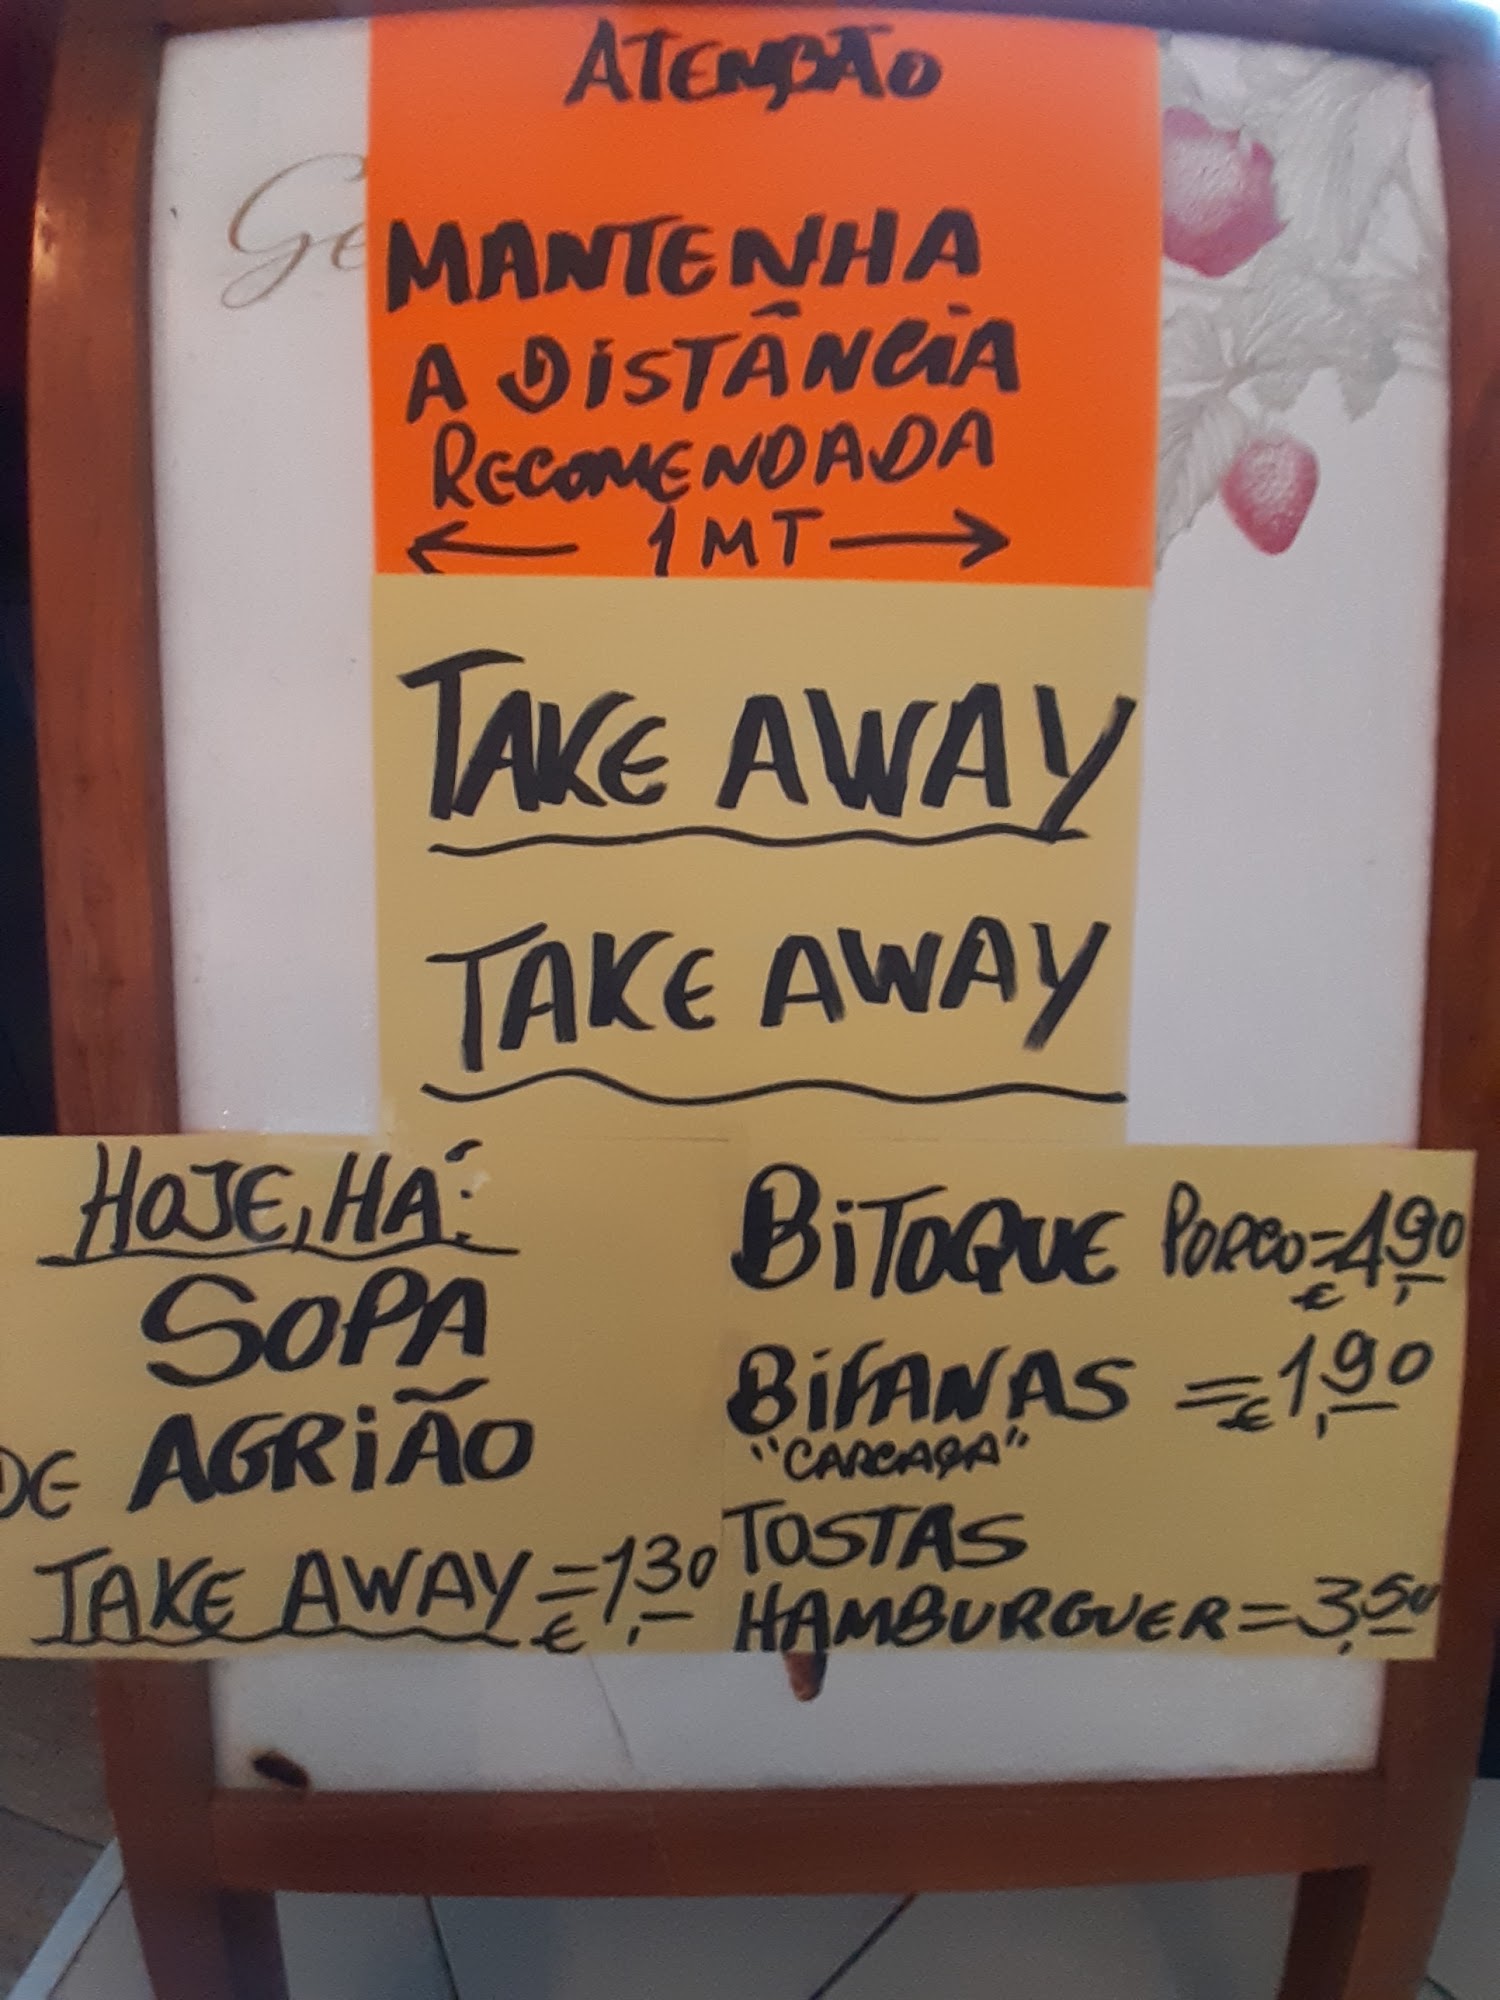 ATENÇÃO
Ge
MANTENHA
A DISTÂNCIA
RECOMENDADA
← 1MT →
TAKE AWAY
TAKE AWAY
HOJE, HÁ:
SOPA
DE AGRIÃO
TAKE AWAY = € 1,30
BITOQUE PORCO = € 4,90
BIFANAS = € 1,90
"CARCAÇA"
TOSTAS
HAMBURGUER = 3,50